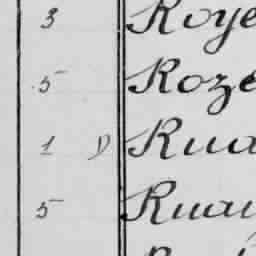 3 Roye
5 Roze
1 Rua
5 Ruau